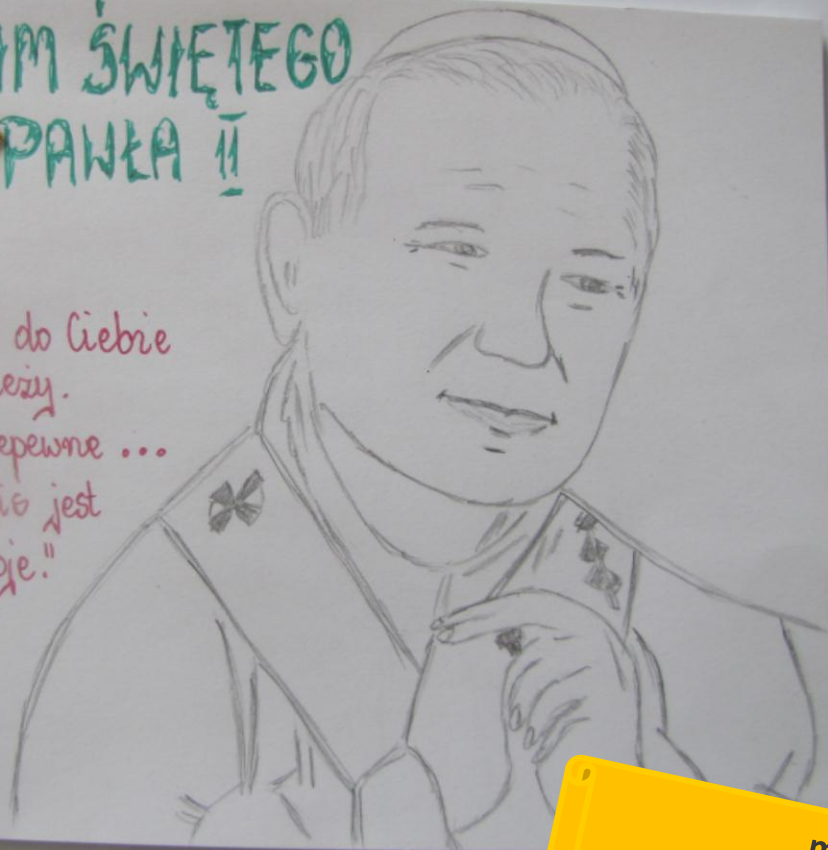 ŚWIĘTEGO
PAWŁA II
do Ciebie
eży.
epewne ...
jest
je."